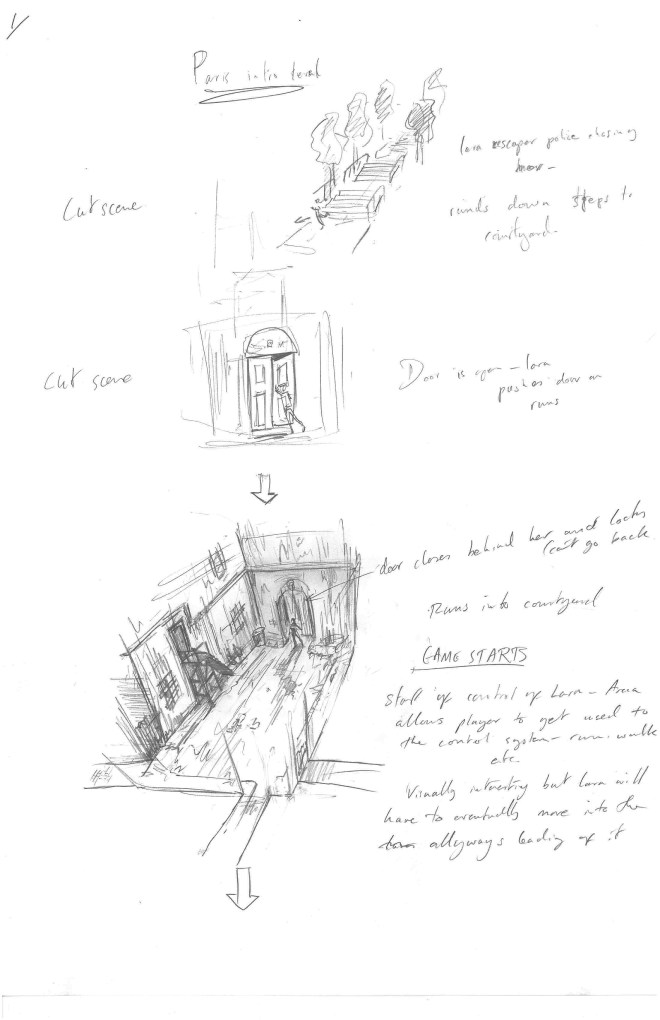 1/
Paris intro level
Cut scene
Lara escapes police chasing
her -
runs down steps to
courtyard.
Cut scene
Door is open - Lara
pushes door an
runs
door closes behind her and locks
(can't go back
Runs into courtyard
GAME STARTS
Start of control of Lara - Area
allows player to get used to
the control system - run. walk
etc.
Visually interesting but Lara will
have to eventually move into the
allyways leading of it